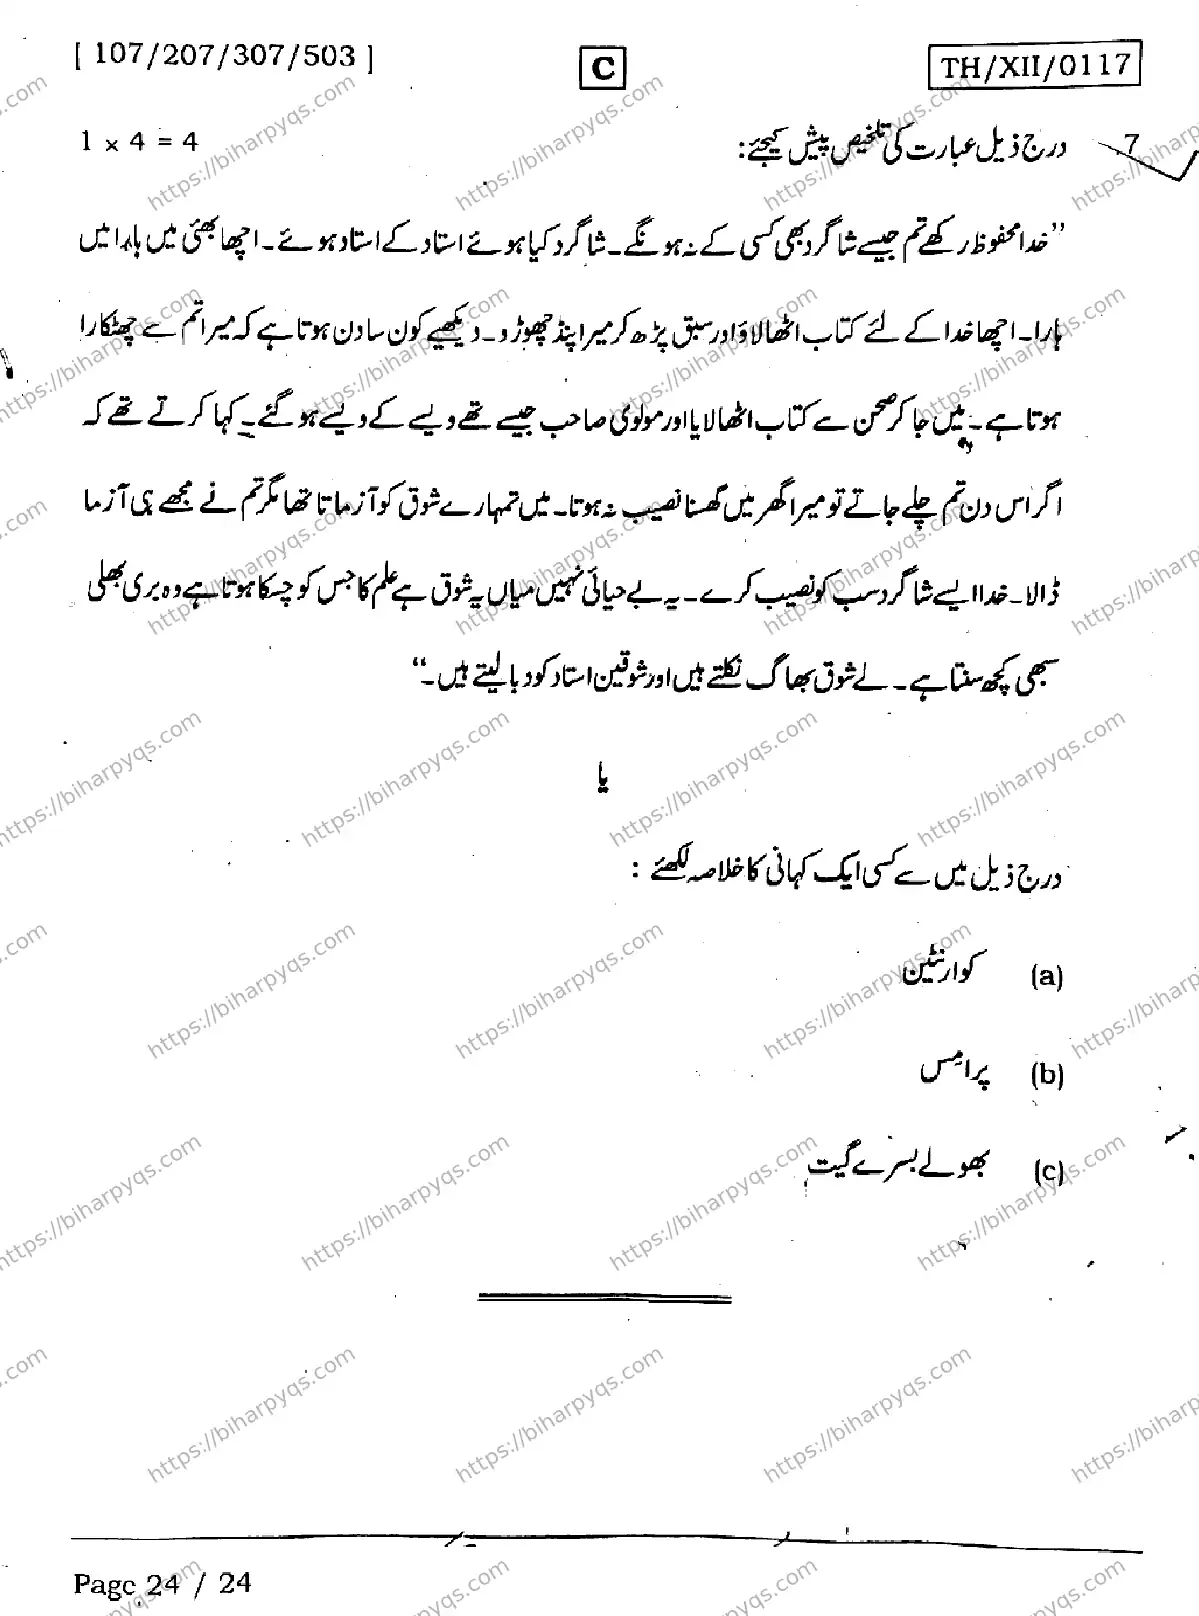 [ 107/207/307/503 ]
C
TH/XII/0117
7. درج ذیل عبارت کی تلخیص پیش کیجئے: 1 x 4 = 4
”خدا محفوظ رکھے تم جیسے شاگرد بھی کسی کے نہ ہونگے۔ شاگرد کیا ہوئے استاد کے استاد ہوئے۔ اچھا بھئی میں ہارا میں
ہارا۔ اچھا خدا کے لئے کتاب اٹھا لاؤ اور سبق پڑھ کر میرا پنڈ چھوڑ دو۔ دیکھیے کون سا دن ہوتا ہے کہ میرا تم سے چھٹکارا
ہوتا ہے۔ میں جا کر صحن سے کتاب اٹھا لایا اور مولوی صاحب جیسے تھے ویسے کے ویسے ہو گئے۔ کہا کرتے تھے کہ
اگر اس دن تم چلے جاتے تو میرا گھر میں گھسنا نصیب نہ ہوتا۔ میں تمہارے شوق کو آزماتا تھا مگر تم نے مجھے ہی آزما
ڈالا۔ خدا ایسے شاگرد سب کو نصیب کرے۔ یہ بے حیائی نہیں میاں یہ شوق ہے علم کا جس کو چسکا ہوتا ہے وہ بری بھلی
سبھی کچھ سنتا ہے۔ بے شوق بھاگ نکلتے ہیں اور شوقین استاد کو دبا لیتے ہیں۔“
یا
درج ذیل میں سے کسی ایک کہانی کا خلاصہ لکھئے :
(a) کوارنٹین
(b) پرامس
(c) بھولے بسرے گیت
Page 24 / 24
https://biharpyqs.com